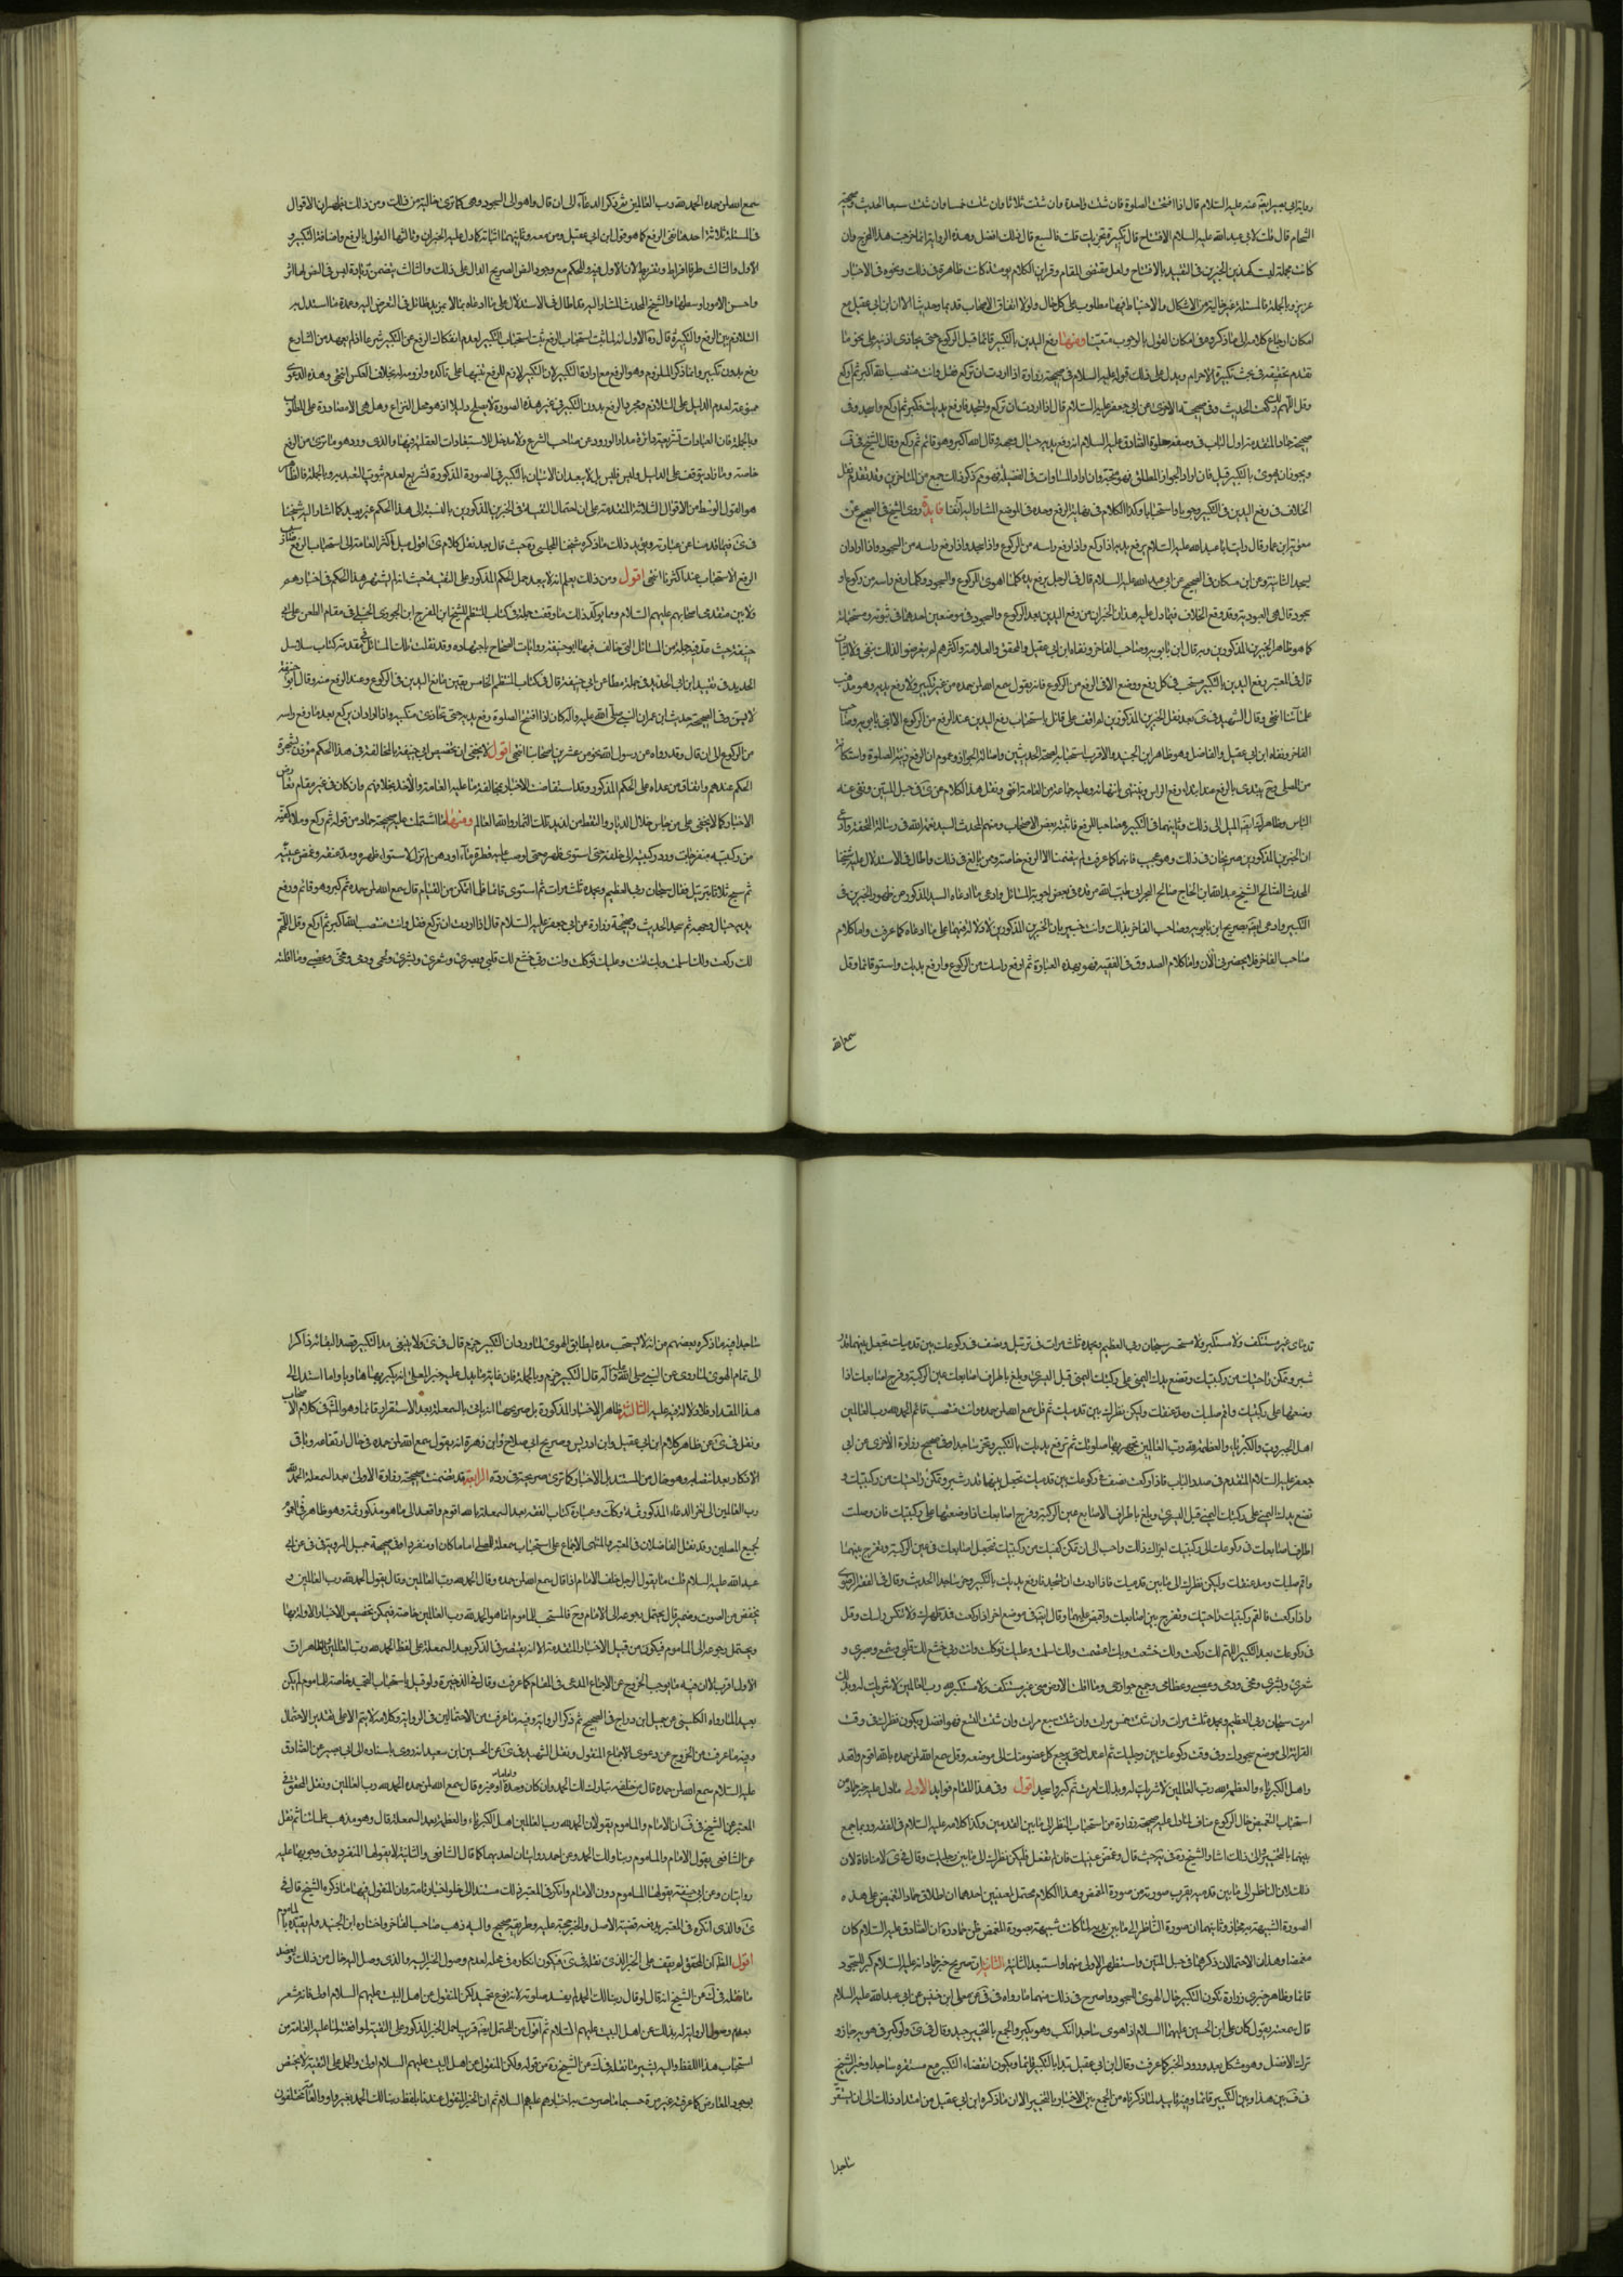 رواية ابي بصير ايضا عنه عليه السلام قال اذا افتتحت الصلوة فان شئت واحدة وان شئت ثلاثا وان شئت خمسا وان شئت سبعا الحديث وصحيحة
الشحام قال قلت لابي عبد الله عليه السلام الافتتاح قال تكبيرة تجزيك قلت فالسبع قال ذلك افضل وهذه الرواية انما خرجت هذا المخرج وان
عزيز وبالجملة فالمسئلة غير خالية من الاشكال والاحتياط فيها مطلوب على كل حال ولولا اتفاق الاصحاب قديما وحديثا الا ابن ابي عقيل مع
امكان ارجاع كلامه الى ما ذكروه في امكان القول بالوجوب متعينا ومنها رفع اليدين بالتكبير قائما قبل الركوع حتى يحاذي اذنيه على نحو ما
تقدم تحقيقه في بحث تكبيرة الاحرام ويدل على ذلك قوله عليه السلام في صحيحة زرارة اذا اردت ان تركع فقل وانت منتصب الله اكبر ثم اركع
وقل اللهم لك ركعت الحديث وفي صحيحته الاخرى عن ابي جعفر عليه السلام قال اذا اردت ان تركع وتسجد فارفع يديك وكبر ثم اركع واسجد وفي
صحيحة حماد المتقدمة اول الباب في وصفه صلوة الصادق عليه السلام انه رفع يديه حيال وجهه وقال الله اكبر وهو قائم ثم ركع وقال الشيخ في ف
ويجوز ان يهوي بالتكبير قيل فان اراد الجواز المطلق فهو متجه وان اراد المساوات في الفضيلة فهو ثم ذكر ذلك جمع من المتاخرين وقد تقدم نقل
الخلاف في رفع اليدين في التكبير وجوبا واستحبابا وكذا الكلام في نهاية الرفع وحده في الموضع المشار اليه آنفا فايدة روى الشيخ في الصحيح عن
معوية ابن عمار قال رايت ابا عبد الله عليه السلام يرفع يديه اذا ركع واذا رفع راسه من الركوع واذا سجد واذا رفع راسه من السجود واذا اراد ان
يسجد الثانية وعن ابن مسكان في الصحيح عن ابي عبد الله عليه السلام قال في الرجل يرفع يده كلما اهوى للركوع والسجود وكلما رفع راسه من ركوع او
سجود قال هي العبودية وقد وقع الخلاف فيما دل عليه هذان الخبران من رفع اليدين بعد الركوع والسجود في موضعين احدهما في ثبوته ومستحبابه
كما هو ظاهر الخبرين المذكورين وبه قال ابن بابويه وصاحب الفاخر ونفاه ابن ابي عقيل والمحقق والعلامة واكثرهم لم يتعرضوا لذلك بنفي ولا اثبات
قال في المعتبر رفع اليدين بالتكبير مستحب في كل رفع ووضع الا في الرفع من الركوع فانه يقول سمع الله لمن حمده من غير تكبير ولا رفع يديه وهو مذهب
علمائنا انتهى وقال الشهيد في ى بعد نقل الخبرين المذكورين لم اقف على قائل باستحباب رفع اليدين عند الرفع من الركوع الا ابني بابويه وصاحب
الفاخر ونفاه ابن ابي عقيل والفاضل وهو ظاهر ابن الجنيد والاقرب استحبابه لصحة الحديثين واصالة الجواز وعموم ان الرفع زينة الصلوة واستكانة
من المصلي وح يبتدي بالرفع عند ابتداء رفع الراس وينتهي بانتهائه وعليه جماعة من العامة انتهى ونقل هذا الكلام عن ى في حبل المتين ونفى عنه
الباس وظاهره ايضا الميل الى ذلك وثانيهما في التكبير مصاحبا للرفع فاثبته بعض الاصحاب ومنهم المحدث السيد نعمة الله في رسالة التحفة وادعى
ان الخبرين المذكورين صريحان في ذلك وهو عجب فانهما كما عرفت لم يتضمنا الا الرفع خاصة وممن بالغ في ذلك واطال في الاستدلال عليه شيخنا
المحدث الصالح الشيخ عبد الله ابن الحاج صالح البحراني طيب الله مرقده في بعض اجوبة المسائل وادعى ما ادعاه السيد المذكور من ظهور الخبرين في
التكبير وادعى ايضا تصريح ابن بابويه وصاحب الفاخر بذلك وانت خبير بان الخبرين المذكورين لا دلالة فيهما على ما ادعاه كما عرفت واما كلام
صاحب الفاخر فلا يحضرني الآن واما كلام الصدوق في الفقيه فهو بهذه العبارة ثم ارفع راسك من الركوع وارفع يديك واستو قائما وقل
سمع الله
سمع الله لمن حمده الحمد لله رب العالمين ثم ذكر الدعاء الى ان قال واهو الى السجود وهي كما ترى خالية من ذلك ومن ذلك يظهر ان الاقوال
في المسئلة ثلاثة احدها نفي الرفع كما هو قول ابن ابي عقيل ومن معه وثانيهما اثباته كما دل عليه الخبران وثالثها القول بالرفع واضافة التكبير و
الاول والثالث طرفا افراط وتفريط لان الاول فيه رد للحكم مع وجود النص الصريح الدال على ذلك والثالث يتضمن زيادة ليس في النص لها اثر
واحسن الامور اوسطها والشيخ المحدث المشار اليه قد اطال في الاستدلال على ما ادعاه بما لا مزيد طائل في التعرض اليه وعمدة ما استدل به
التلازم بين الرفع والتكبير قال ره الاول انه لما ثبت استحباب الرفع ثبت استحباب التكبير لعدم انفكاك الرفع عن التكبير شرعا اذ لم يعهد من الشارع
رفع بدون تكبير وانما ذكر الملزوم وهو الرفع مع ارادة التكبير لان التكبير لازم للرفع تنبيها على تاكده ولزومه له بخلاف العكس انتهى وهذه الدعوى
ممنوعة لعدم الدليل على التلازم ومجرد الرفع بدون التكبير في غير هذه الصورة لا يصلح دليلا اذ هو محل النزاع وهل هي الا مصادرة على المطلوب
وبالجملة فان العبادات تشريعية دائرة مدار الورود عن صاحب الشرع ولا مدخل للاستبعادات العقلية فيها والذي ورد هو ما ترى من الرفع
خاصة وما زاد يتوقف على الدليل وليس فليس بل لا يبعد ان الاتيان بالتكبير في الصورة المذكورة تشريع لعدم ثبوت التعبد به وبالجملة فالظاهر
هو القول الوسط من الاقوال الثلاثة المتقدمة على ان احتمال التقية في الخبرين المذكورين بالنسبة الى هذا الحكم غير بعيد كما اشار اليه شيخنا
الرفع لاستحباب عند اكثرنا انتهى اقول ومن ذلك يعلم انه لا يبعد حمل الحكم المذكور على التقية حيث انه لم يشتهر هذا الحكم في اخبارهم
ولا بين متقدمي اصحابهم عليهم السلام ومما يؤكد ذلك ما وقفت عليه في كتاب المنتظم للشيخ ابن الفرج ابن الجوزي الحنبلي في مقام الطعن على ابي
حنيفة حيث عد فيه جملة من المسائل التي خالف فيها ابو حنيفة روايات الصحاح باجتهاده وقد نقلت تلك المسائل في مقدمة كتاب سلاسل
الحديد في تقييد ابن ابي الحديد في جملة مطاعن ابي حنيفة قال في كتاب المنتظم الخامس يتعين رفع اليدين في الركوع وعند الرفع منه وقال ابو حنيفة
لا يسن وفي الصحيحين حديث ابن عمر ان النبي صلى الله عليه واله كان اذا افتتح الصلوة رفع يديه حتى تحاذي منكبيه واذا اراد ان يركع بعد ما رفع راسه
من الركوع الى ان قال وقد رواه عن رسول الله نحو من عشرين صحابيا انتهى اقول لا يخفى ان تخصيص ابي حنيفة بالمخالفة في هذا الحكم مؤذن بشهرة
الحكم عندهم واتفاق من عداه على الحكم المذكور وقد استفاضت الاخبار بمخالفة ما عليه العامة والاخذ بخلافهم وان كان في غير مقام تعارض
الاخبار كما لا يخفى على من جاس خلال الديار والتقط من لذيذ تلك الثمار والله العالم ومنها ما اشتملت عليه صحيحة حماد من قوله ثم ركع وملأ كفيه
من ركبتيه منفرجات ورد ركبتيه الى خلفه حتى استوى ظهره حتى لو صب عليه قطرة ماء او دهن لم تزل لاستواء ظهره ومد عنقه وغمض عينيه
ثم سبح ثلاثا بترتيل فقال سبحان ربي العظيم وبحمده ثلث مرات ثم استوى قائما فلما تمكن من القيام قال سمع الله لمن حمده ثم كبر وهو قائم ورفع
يديه حيال وجهه ثم سجد الحديث وصحيحة زرارة عن ابي جعفر عليه السلام قال اذا اردت ان تركع فقل وانت منتصب الله اكبر ثم اركع وقل اللهم
لك ركعت ولك اسلمت وبك امنت وعليك توكلت وانت ربي خشع لك قلبي وبصري وشعري وبشري ولحمي ودمي ومخي وعصبي وما اقلته
قدماي غير مستنكف ولا مستكبر ولا مستحسر سبحان ربي العظيم وبحمده ثلث مرات في ترتيل وتصف في ركوعك بين قدميك تجعل بينهما قدر
شبر وتمكن راحتيك من ركبتيك وتضع يدك اليمنى على ركبتك اليمنى قبل اليسرى وبلغ باطراف اصابعك عين الركبة وفرج اصابعك اذا
وضعتها على ركبتيك واقم صلبك ومد عنقك وليكن نظرك بين قدميك ثم قل سمع الله لمن حمده وانت منتصب قائم الحمد لله رب العالمين
اهل الجبروت والكبرياء والعظمة لله رب العالمين تجهر بها صوتك ثم ترفع يديك بالتكبير وتخر ساجدا وفي صحيح زرارة الاخرى عن ابي
جعفر عليه السلام المتقدم في صدر الباب فاذا ركعت فصف في ركوعك بين قدميك تجعل بينهما قدر شبر وتمكن راحتيك من ركبتيك و
تضع يدك اليمنى على ركبتك اليمنى قبل اليسرى وبلغ باطراف الاصابع عين الركبة وفرج اصابعك اذا وضعتها على ركبتيك فان وصلت
اطراف اصابعك في ركوعك الى ركبتيك اجزاك ذلك واحب الى ان تمكن كفيك من ركبتيك فتجعل اصابعك في عين الركبة وتفرج بينهما
واقم صلبك ومد عنقك وليكن نظرك الى ما بين قدميك فاذا اردت ان تسجد فارفع يديك بالتكبير وخر ساجدا الحديث وقال في الفقه الرضوي
واذا ركعت فالقم ركبتيك راحتيك وتفرج بين اصابعك واقبض عليهما وقال ايضا في موضع اخر اذا ركعت فمد ظهرك ولا تنكس راسك وقل
في ركوعك بعد التكبير اللهم لك ركعت ولك خشعت وبك اعتصمت ولك اسلمت وعليك توكلت وانت ربي خشع لك قلبي وسمعي وبصري و
شعري وبشري ومخي ودمي وعصبي وعظامي وجميع جوارحي وما اقلت الارض مني غير مستنكف ولا مستكبر لله رب العالمين لا شريك له وبذلك
امرت سبحان ربي العظيم وبحمده ثلث مرات وان شئت خمس مرات وان شئت سبع مرات وان شئت التسع فهو افضل ويكون نظرك في وقت
القرائة الى موضع سجودك وفي وقت ركوعك بين رجليك ثم اعتدل حتى يرجع كل عضو منك الى موضعه وقل سمع الله لمن حمده بالله اقوم واقعد
واهل الكبرياء والعظمة لله رب العالمين لا شريك له وبذلك امرت ثم كبر واسجد اقول وفي هذا المقام فوايد الاولى ما دل عليه خبر حماد من
استحباب التغميض حال الركوع مناف لما دل عليه صحيحة زرارة من استحباب النظر الى ما بين القدمين وكذا كلامه عليه السلام في الفقه وربما جمع
بينهما بالتخيير والى ذلك اشار الشيخ ره في يه حيث قال وغمض عينيك فان لم تفعل فليكن نظرك الى ما بين رجليك وقال في ى لا منافاة لان
ذلك لان الناظر الى ما بين قدميه يقرب صورته من صورة المغمض وهذا الكلام محتمل لمعنيين احدهما ان اطلاق حماد التغميض على هذه
الصورة الشبيهة به مجازا وثانيهما ان صورة الناظر الى ما بين يديه لما كانت شبيهة بصورة المغمض ظن حماد ان الصادق عليه السلام كان
مغمضا وهذان الاحتمالان ذكرهما في حبل المتين واستظهر الاولى منهما واستبعد الثانية الثانية ان تصريح خبر حماد انه عليه السلام كبر للسجود
قائما وظاهر خبري زرارة كون التكبير حال الهوى للسجود واصرح في ذلك منهما ما رواه في في عن معلى ابن خنيس عن ابي عبد الله عليه السلام
قال سمعته يقول كان علي ابن الحسين عليهما السلام اذا هوى ساجدا انكب وهو يكبر والجمع بالتخيير جيد وقال في ى ولو كبر في هويه جاز و
ترك الافضل وهو مشكل بعد ورود الخبر كما عرفت وقال ابن ابي عقيل يبدا بالتكبير قائما ويكون انقضاء التكبير مع مستقره ساجدا وخير الشيخ
في ف بين هذا وبين التكبير قائما وفيه تاييد لما ذكرناه من الجمع بين الاخبار بالتخيير الا ان ما ذكره ابن ابي عقيل من امتداد ذلك الى ان يستقر
ساجدا
ساجدا فيه ما ذكره بعضهم من انه لا يستحب مده ليطابق الهوى لما ورد ان التكبير جزم قال في ى ولا ينبغي مد التكبير قصدا لبقائه ذاكرا
الى تمام الهوى لما روي عن النبي صلى الله عليه وآله انه قال التكبير جزم وبالجملة فان غاية ما يدل عليه خبر المعلى انه يكبر بها هاويا واما استدامته الى
هذا المقدار فلا دلالة فيه عليه الثالثة ظاهر الاخبار المذكورة بل صريحها انه ياتي بالسمعلة بعد الاستقرار قائما وهو المشهور في كلام الاصحاب
ونقل في ى عن ظاهر كلام ابن ابي عقيل وابن ادريس وصريح ابي صلاح وابن زهرة انه يقول سمع الله لمن حمده في حال ارتفاعه وباقي
الاذكار بعد انتصابه وهو خال من المستند بل الاخبار كما ترى صريحة في رده الرابعة قد تضمنت صحيحة زرارة الاولى بعد السمعلة الحمد لله
رب العالمين الى اخر الدعاء المذكور ثمة وكذلك عبارة كتاب الفقه بعد السمعلة بالله اقوم واقعد الى ما هو مذكور ثمة وهو ظاهر في العموم
لجميع المصلين وقد نقل الفاضلان في المعتبر والمنتهى الاجماع على استحباب سمعلة المصلي اماما كان او منفردا وفي صحيحة جميل المروية في في عن ابي
عبد الله عليه السلام قلت ما يقول الرجل خلف الامام اذا قال سمع الله لمن حمده قال الحمد لله رب العالمين وقال يقول الحمد لله رب العالمين و
يخفض من الصوت وضمير قال يحتمل رجوعه الى الامام وح فالمستحب للماموم انما هو الحمد لله رب العالمين خاصة فيمكن تخصيص الاخبار الاولة بها
ويحتمل رجوعه الى الماموم فيكون من قبيل الاخبار المتقدمة الا انه يقتصر في الذكر بعد السمعلة على لفظ الحمد لله رب العالمين والظاهر ان
الاول اقرب لان فيه ما يوجب الخروج عن الاجماع المدعى في المقام كما عرفت وقال في الذخيرة ولو قيل باستحباب التحميد خاصة للماموم لم يكن
بعيدا لما رواه الكليني عن جميل ابن دراج في الصحيح ثم ذكر الرواية وفيه ما عرفت من الاحتمالين في الرواية وكلامه لا يتم الا على تقدير الاحتمال
وفيه ما عرفت من الخروج عن دعوى الاجماع المنقول ونقل الشهيد في ى عن الحسين ابن سعيد انه روى باسناده الى ابي بصير عن الصادق
عليه السلام سمع الله لمن حمده قال من خلفه ربنا لك الحمد وان كان وحده اماما او غيره قال سمع الله لمن حمده الحمد لله رب العالمين ونقل المحقق في
المعتبر عن الشيخ في ف ان الامام والماموم يقولان الحمد لله رب العالمين اهل الكبرياء والعظمة بعد السمعلة قال وهو مذهب علمائنا ثم نقل
عن الشافعي يقول الامام والماموم ربنا ولك الحمد وعن احمد روايتان احديهما كما قال الشافعي والثانية لا يقولها المنفرد وفي وجوبها عليه
روايتان وعن ابي حنيفة يقولها الماموم دون الامام وانكر في المعتبر ذلك مستندا الى خلو اخبارنا منه وان المنقول فيها ما ذكره الشيخ قال في
ى والذي انكره في المعتبر يدفعه قضية الاصل والخبر حجة عليه وطريقه صحيح واليه ذهب صاحب الفاخر واختاره ابن الجنيد ولم يقيده بالماموم
اقول الظاهر ان المحقق لم يقف على الخبر الذي نقله في ى فيكون انكاره في محله لعدم وصول الخبر اليه والذي وصل اليه خال من ذلك ويعضد
ما نقله في ك عن الشيخ انه قال لو قال ربنا لك الحمد لم يفسد صلوته لانه نوع تحميد لكن المنقول عن اهل البيت عليهم السلام اولى فانه مشعر
بعدم وصول الرواية له بذلك عن اهل البيت عليهم السلام ثم اقول من المحتمل ايضا قريبا حمل الخبر المذكور على التقية لموافقته لما عليه العامة من
استحباب هذا اللفظ واليه يشير ما نقله في ك عن الشيخ ره من قوله ولكن المنقول عن اهل البيت عليهم السلام اولى والحمل على التقية لا يختص
بوجود المعارض كما عرفته غير مرة حسبما صرحت به اخبارهم عليهم السلام ثم ان الخبر المنقول عندنا بلفظ ربنا لك الحمد بغير واو والعامة مختلفون